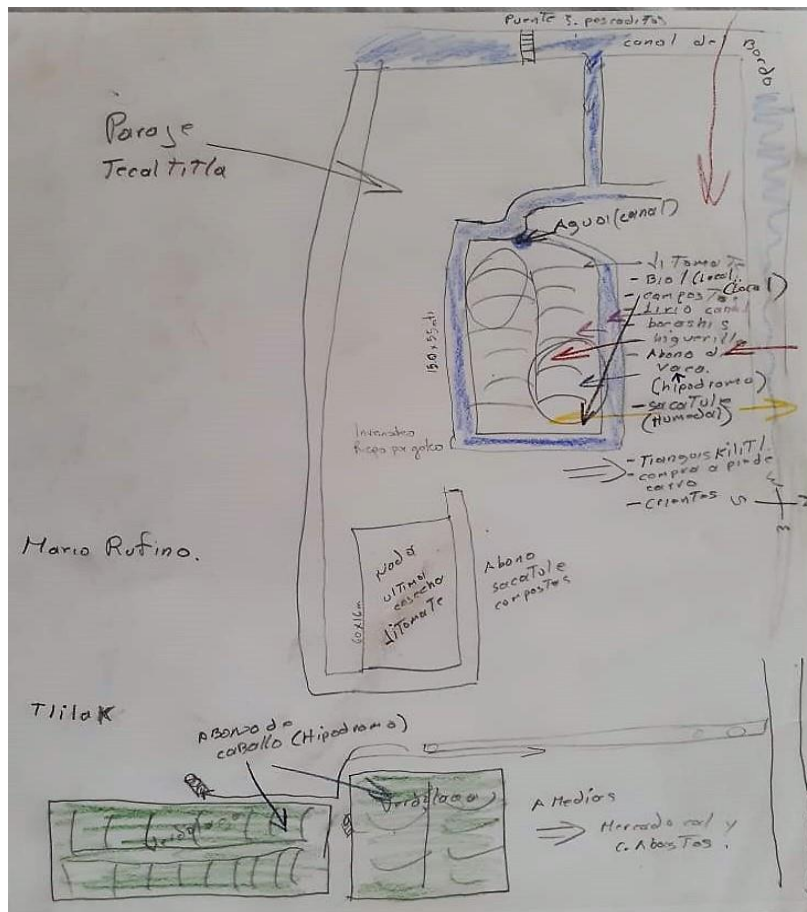 Puente 3. pescaditos
canal del Bordo
Paraje
Tecaltitla
Agua (canal)
- Jitomate
- Bio / (Local)
- composta. (Local)
- Lirio canal
- boashis
- higuerilla
- Abono de
vaca.
(hipodromo)
- sacatule
(Humedal)
15.0 x 55 mti
Invernadero
- Tianguis Kilitl.
- compra a pie de
carro
- clientes
Mario Rufino.
Nada
ultima
cosecha
Jitomate
60x16m
Abono
sacatule
compostas
Tlilak
Abono de
caballo (Hipodromo)
Verdolaga
Verdolaga
A Medias
Mercado cal y
C. Abastos.